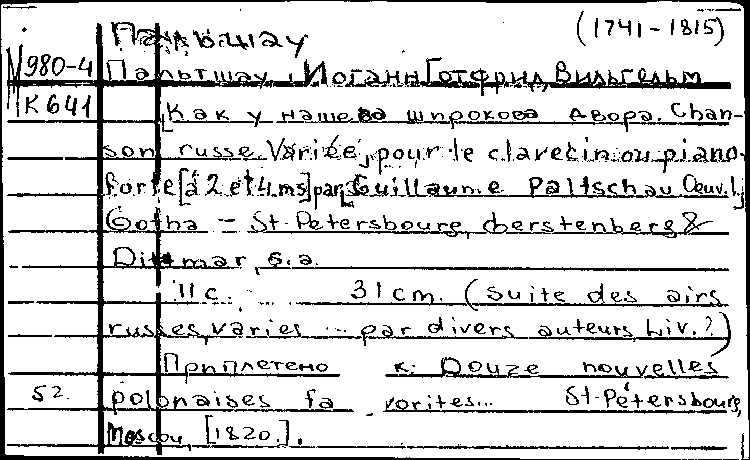 Пальшау (1741-1815)
М 980-4 Пальтшау, Иоганн Готфрид Вильгельм
К 641 [Как у нашева широкова двора. Chan-
son russe. Variée, pour le clavecin ou piano-
forte [à 2 et 4 ms] par Guillaume Paltschau Oeuv.1.]
Gotha - St-Petersbourg, Gerstenberg &
Dittmar, s.a.
11 c. 31 cm. (Suite des airs
russes, varies ... par divers auteurs, Liv. ?)
Приплетено к: Douze nouvelles
52. polonaises fa vorites... St-Pétersbourg,
Moscou, [1820.].